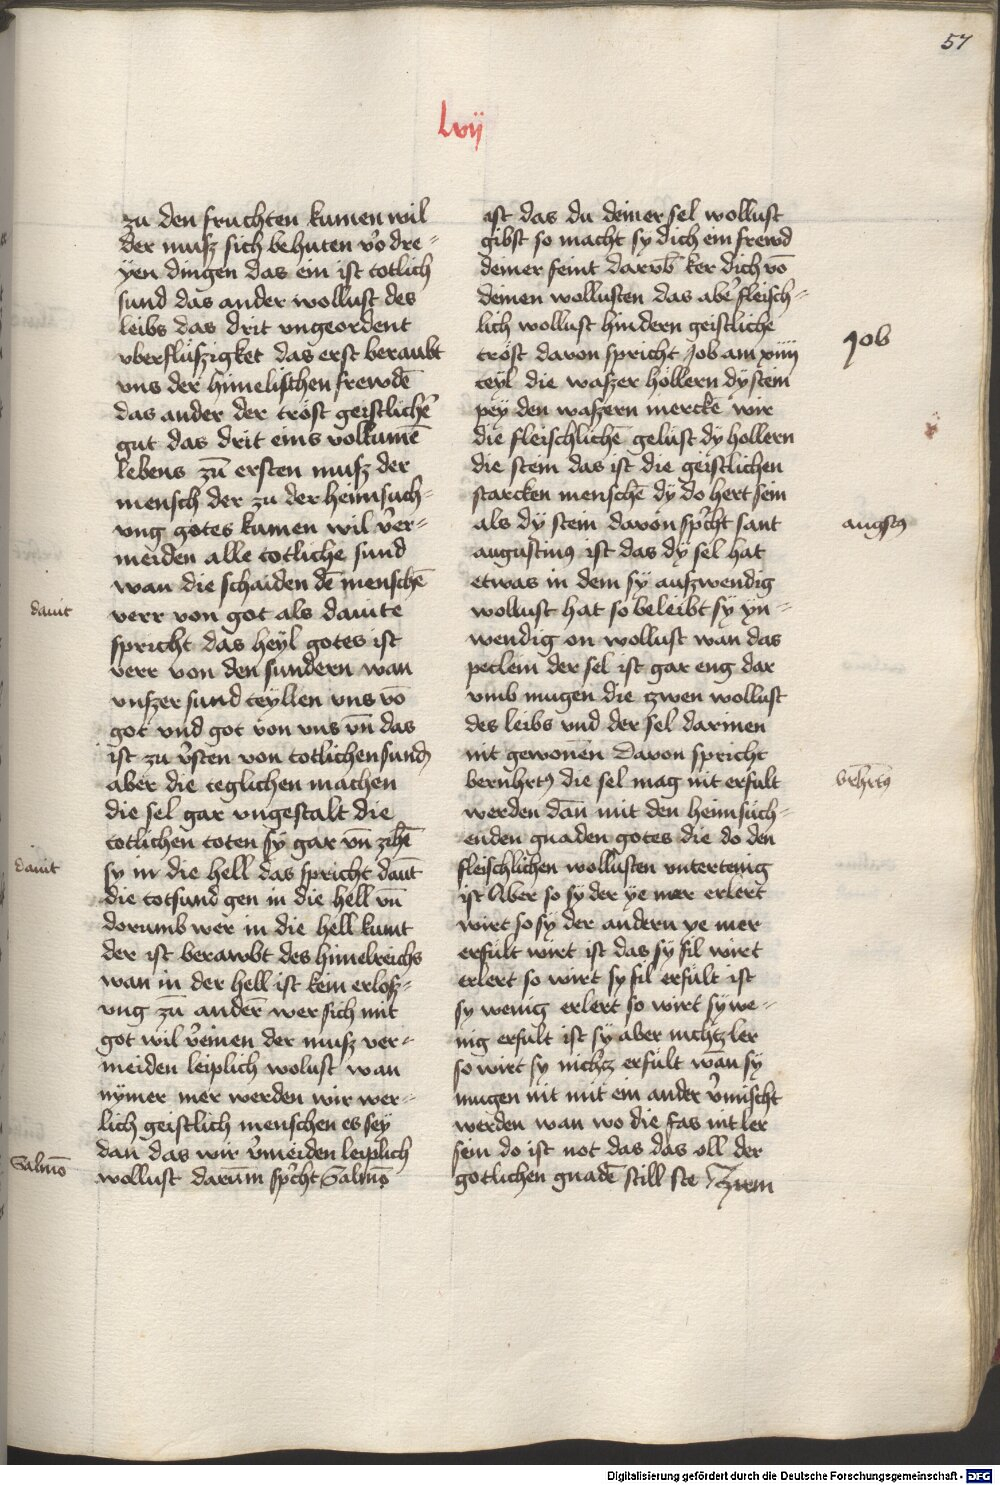 57
Lvij
zu den fruchten kumen wil
der musz sich behuten vo᷑ dre⸗
yen dingen das ein ist totlich
sund das ander wollust des
leibs das drit vngeordent
vberflüszigket das erst beraubt
vns der himelischen frewdē
das ander der tröst geistlich᷑
gut das drit eins volkumē
lebens zū ersten musz der
mensch der zu der heimsuch⸗
ung gotes kumen wil v᷑er⸗
meiden alle totliche sund
wan die schaiden dē menschē
dauit
verr von got als dauite
spricht das heyl gotes ist
verr von den sundern wan
vnszer sund teyllen vns vō
got vnd got von vns vn̄ das
ist zu v᷑sten von totlichen sund᷑
aber die teglichen machen
die sel gar vngestalt die
totlichen toten sy gar vn̄ zihē
dauit
sy in die hell das spricht dau̅t
die totsund gen in die hell vn̄
dorumb wer in die hell kumt
der ist berawbt des himelreichs
wan in der hell ist kein erlosz⸗
ung zū ander̄ wer sich mit
got wil v᷑einen der musz ver⸗
meiden leiplich wolust wan
nymer mer werden wir wer⸗
lich geistlich menschen es sey
dan das wir v᷑meiden leiplich
Salmō
wollust daru̅m sp᷑cht Salmō
ist das du deiner sel wollust
gibst so macht sy dich ein frewd
deiner feint daru̅b ker dich vō
deinen wollusten das abe᷑ fleisch⸗
lich wollust hindern geistliche
Job
tröst davon spricht Job am xiiij
teyl die waszer hollern dy stein
pey den waszern mercke wir
die fleischlichē gelüst dy hollern
die stein das ist die geistlichen
starcken menschē dy do hert sein
augst9
als dy stein davon sp᷑cht sant
augustin9 ist das dy sel hat
etwas in dem sy auszwendig
wollust hat so beleibt sy yn⸗
wendig on wollust wan das
petlein der sel ist gar eng dar
vmb mugen die zwen wollust
des leibs vnd der sel darinen
nit gewonen Davon spricht
b᷑nhrt9
bernhrt9 die sel mag nit erfult
werden dan̄ mit den heimsuch⸗
enden gnaden gotes die do den
fleischlichen wollusten vntertenig
ist Aber so sy der ye mer erlert
wirt so sy der andern ye mer
erfült wirt ist das sy fil wirt
erlert so wirt sy fil erfült ist
sy wenig erlert so wirt sy we⸗
nig erfult ist sy aber nichtz ler
so wirt sy nichtz erfült wan sy
mugen nit mit ein ander v᷑mischt
werden wan wo die fas nit ler
sein do ist not das das oll der
gotlichen gnadē still ste Zum
Digitalisierung gefördert durch die Deutsche Forschungsgemeinschaft - DFG